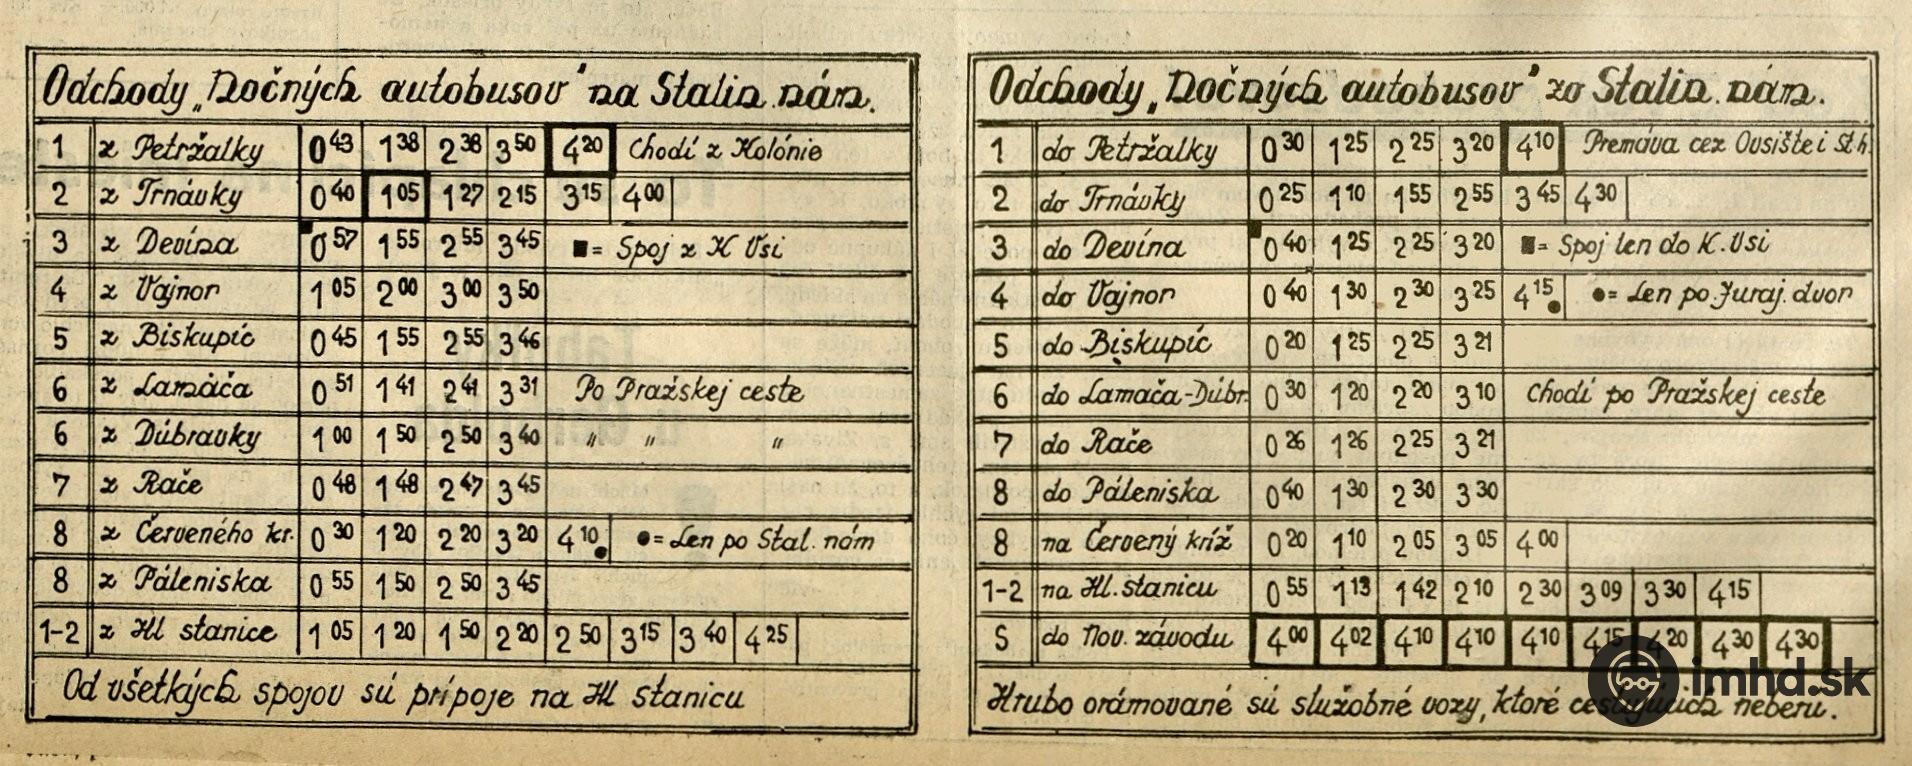 Odchody „Nočných autobusov" na Stalin. nám.
1 z Petržalky 0 43 1 38 2 38 3 50 4 20 Chodí z Kolónie
2 z Trnávky 0 40 1 05 1 27 2 15 3 15 4 00
3 z Devína 0 57 1 55 2 55 3 45 ■= Spoj z K Vsi
4 z Vajnor 1 05 2 00 3 00 3 50
5 z Biskupíc 0 45 1 55 2 55 3 46
6 z Lamača 0 51 1 41 2 41 3 31 Po Pražskej ceste
6 z Dúbravky 1 00 1 50 2 50 3 40 „ „ „
7 z Rače 0 48 1 48 2 47 3 45
8 z Červeného kr. 0 30 1 20 2 20 3 20 4 10 ● ●= Len po Stal. nám
8 z Páleniska 0 55 1 50 2 50 3 45
1-2 z Hl stanice 1 05 1 20 1 50 2 20 2 50 3 15 3 40 4 25
Od všetkých spojov sú prípoje na Hl stanicu
Odchody „Nočných autobusov" zo Stalin. nám.
1 do Petržalky 0 30 1 25 2 25 3 20 4 10 Premáva cez Ovsište i St. h.
2 do Trnávky 0 25 1 10 1 55 2 55 3 45 4 30
3 do Devína ■ 0 40 1 25 2 25 3 20 ■= Spoj len do K. Vsi
4 do Vajnor 0 40 1 30 2 30 3 25 4 15 ● ●= Len po Juraj. dvor
5 do Biskupíc 0 20 1 25 2 25 3 21
6 do Lamača-Dúbr. 0 30 1 20 2 20 3 10 Chodí po Pražskej ceste
7 do Rače 0 26 1 26 2 25 3 21
8 do Páleniska 0 40 1 30 2 30 3 30
8 na Červený kríž 0 20 1 10 2 05 3 05 4 00
1-2 na Hl. stanicu 0 55 1 13 1 42 2 10 2 30 3 09 3 30 4 15
S do Nov. závodu 4 00 4 02 4 10 4 10 4 10 4 15 4 20 4 30 4 30
Hrubo orámované sú služobné vozy, ktoré cestujúcich neberú.
imhd.sk